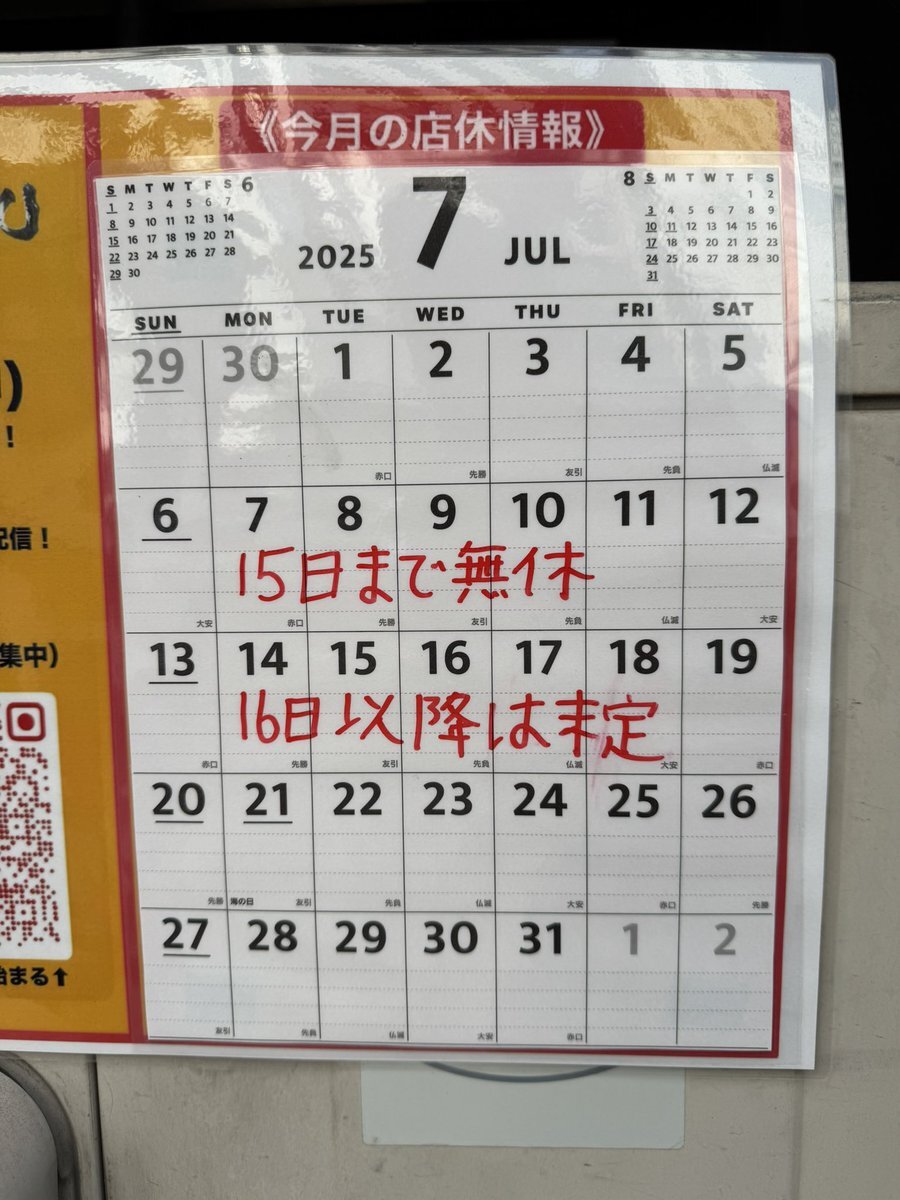 《今月の店休情報》
S M T W T F S 6
1 2 3 4 5 6 7
8 9 10 11 12 13 14
15 16 17 18 19 20 21
22 23 24 25 26 27 28
29 30
2025 7 JUL
8 S M T W T F S
1 2
3 4 5 6 7 8 9
10 11 12 13 14 15 16
17 18 19 20 21 22 23
24 25 26 27 28 29 30
31
SUN MON TUE WED THU FRI SAT
29 30 1 2 3 4 5
赤口 先勝 友引 先負 仏滅
6 7 8 9 10 11 12
15日まで無休
大安 赤口 先勝 友引 先負 仏滅 大安
13 14 15 16 17 18 19
16日以降は未定
赤口 先勝 友引 先負 仏滅 大安 赤口
20 21 22 23 24 25 26
先勝 海の日 友引 先負 仏滅 大安 赤口 先勝
27 28 29 30 31 1 2
友引 先負 仏滅 大安 赤口
び
)
!
配信！
集中)
始まる↑